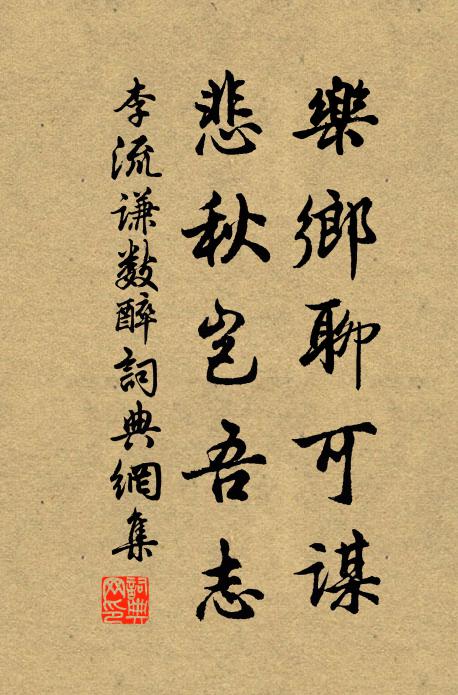 樂鄉聊可謀
悲秋豈吾志
李流謙數醉詞典網集
詞典網印